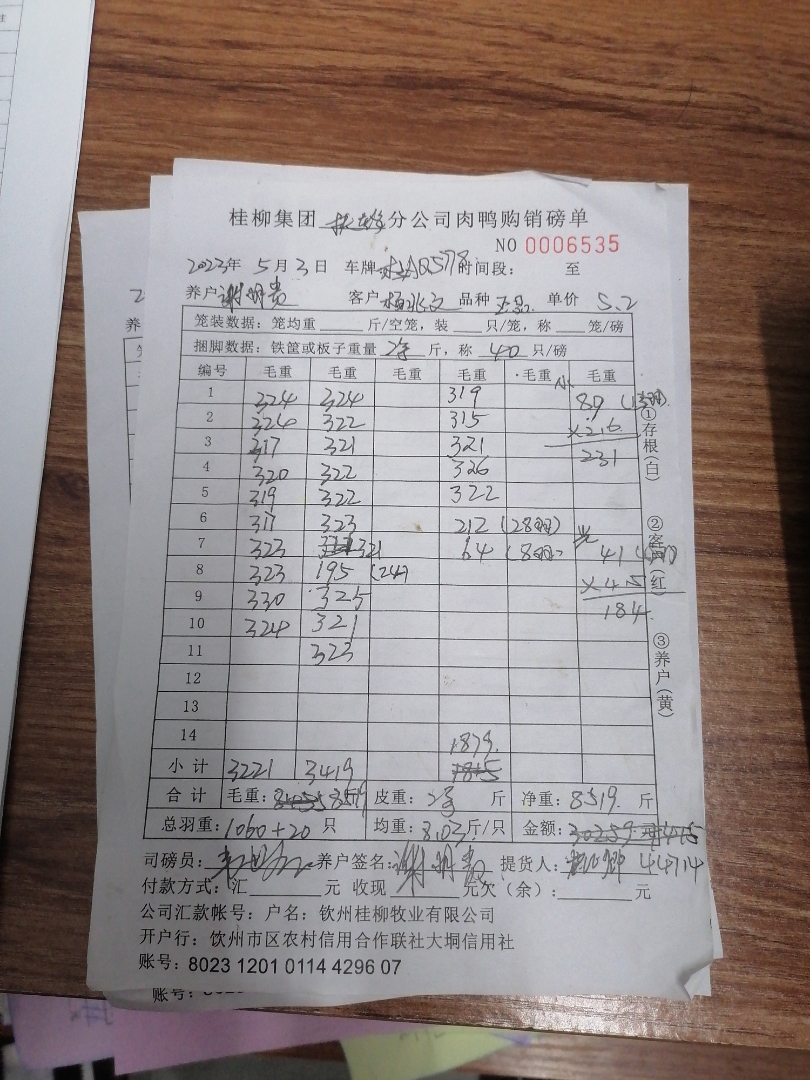 桂柳集团 分公司肉鸭购销磅单
NO 0006535
2023年 5月3日 车牌 Q578 时间段: 至
养户 谢明贵 客户 杨 品种 正品 单价 5.2
笼装数据:笼均重 斤/空笼,装 只/笼,称 笼/磅
捆脚数据:铁筐或板子重量 斤,称 40 只/磅
编号 毛重 毛重 毛重 毛重 毛重 小 毛重
1 324 324 319 89
2 324 322 315 ×2.6
3 317 321 321 231
4 320 322 326
5 319 322 322
6 317 323 212 (28羽)
7 323 321 64 (8羽) 41
8 323 195 (24) ×4.5
9 330 325 184
10 324 321
11 323
12
13
14 1879
小计 3221 3419 1815
合计 毛重: 8519 皮重: 斤 净重:8519 斤
总羽重:1060+20 只 均重:8.03斤/只 金额:30259元
司磅员: 养户签名:谢明贵 提货人: 44714
付款方式:汇 元 收现 元欠(余): 元
公司汇款帐号:户名:钦州桂柳牧业有限公司
开户行:饮州市区农村信用合作联社大垌信用社
账号:8023 1201 0114 4296 07
①存根(白)
②客户(红)
③养户(黄)
账号: